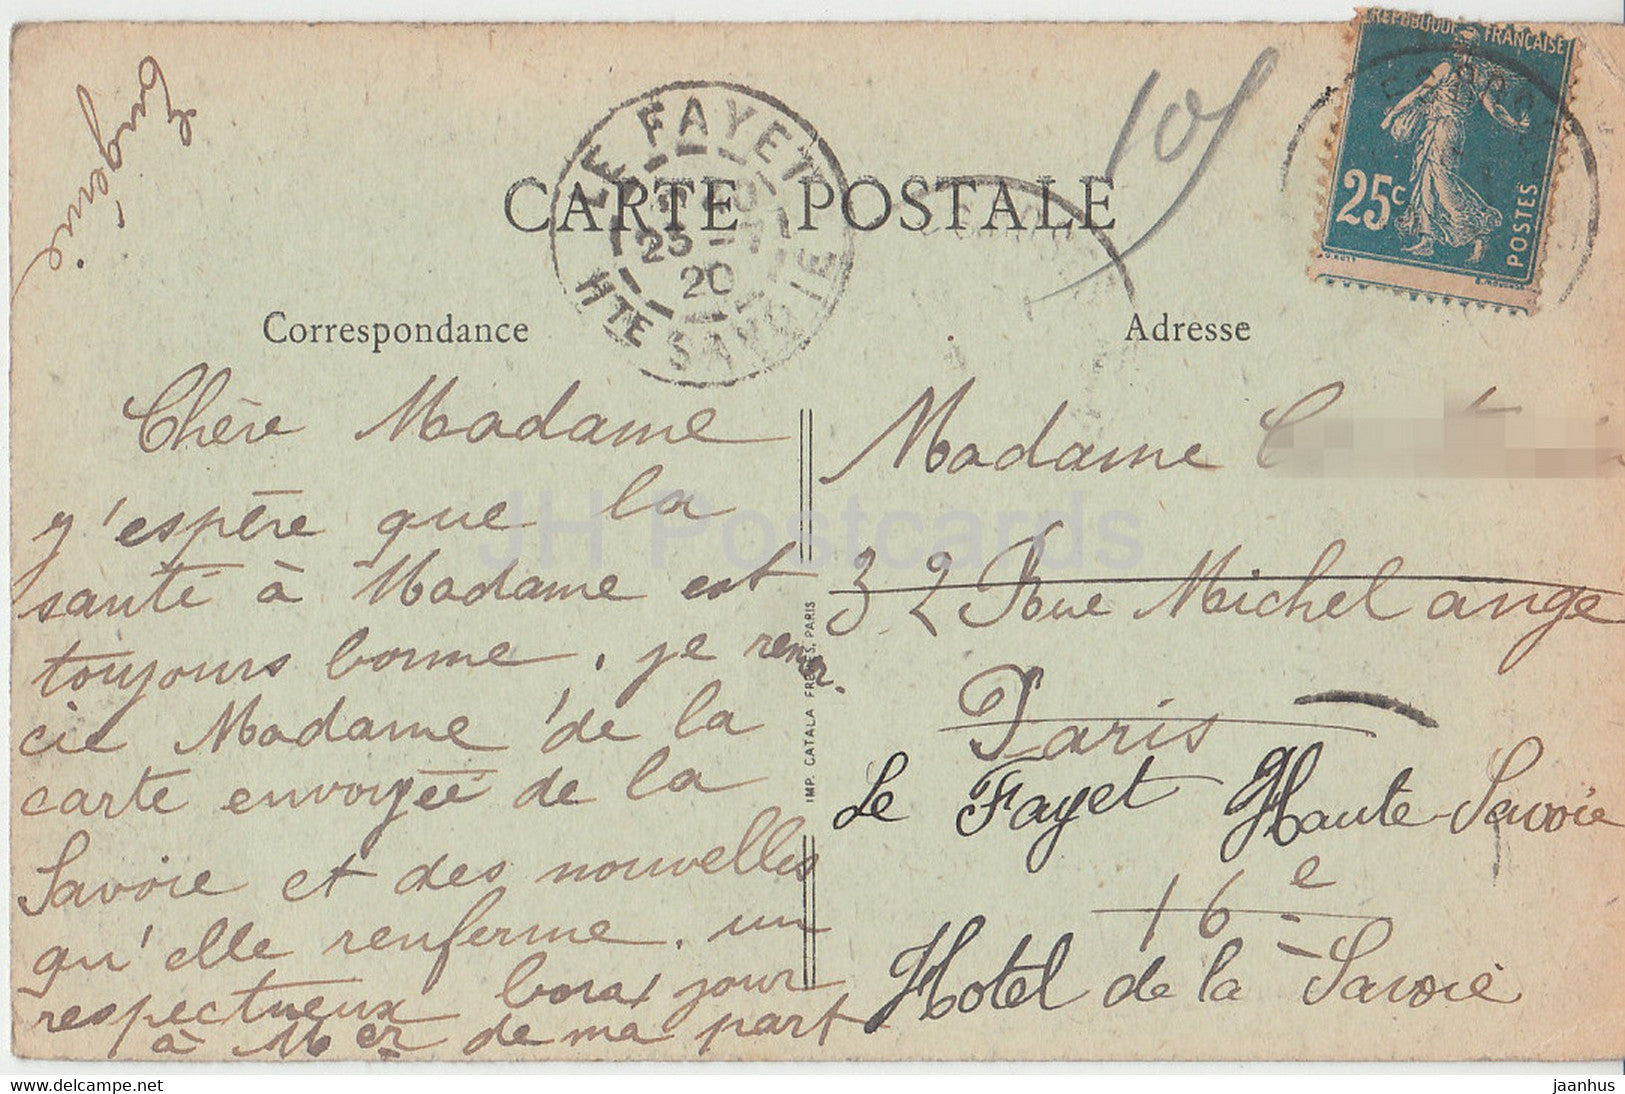 Eugénie
LE FAYET
25 - 
20
HTE SAVOIE
REPUBLIQUE FRANÇAISE
25c
POSTES
CARTE POSTALE
Correspondance
Adresse
Chère Madame
y'espère que la
santé à Madame est
toujours bonne, je remer-
cie Madame de la
carte envoyée de la
Savoie et des nouvelles
qu'elle renferme. un
respectueux bonjour
à Mer de ma part
IMP. CATALA FRERES, PARIS
Madame
32 Rue Michel ange
Paris
Le Fayet Haute-Savoie
16e
Hotel de la Savoie
JH Postcards
jaanhus
www.delcampe.net